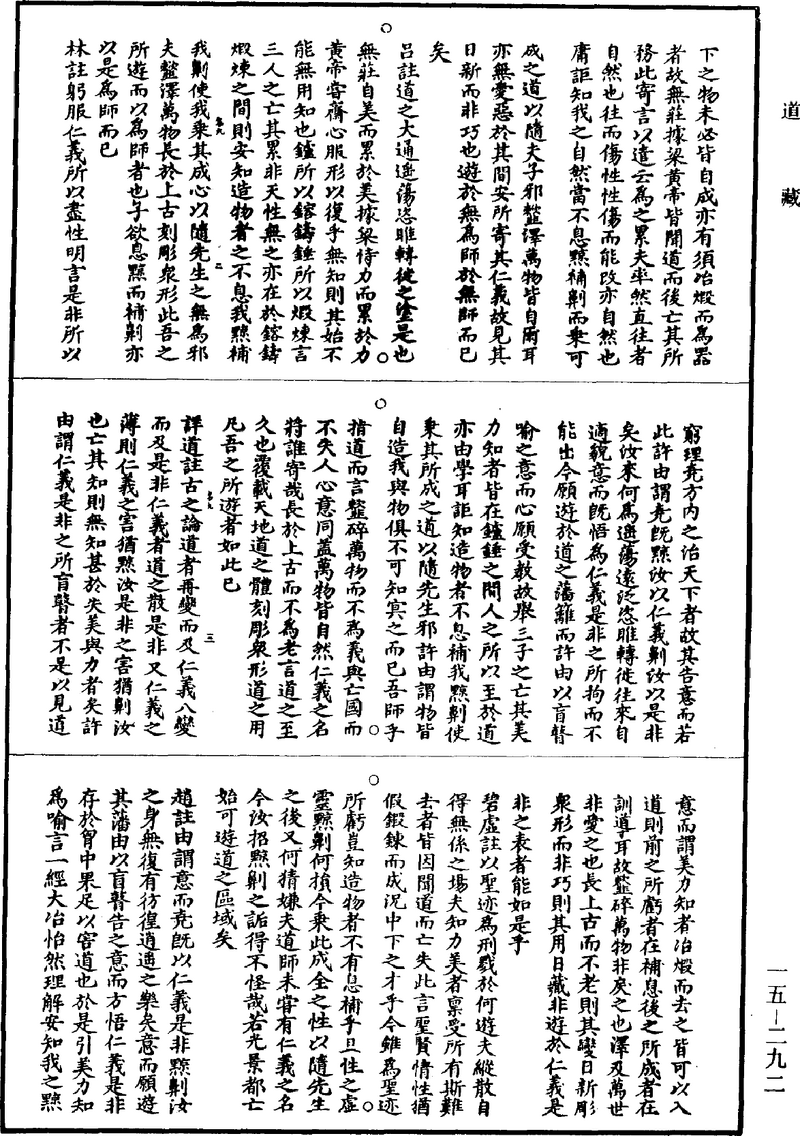 道藏
下之物未必皆自成亦有須冶煅而為器
者故無莊據梁黃帝皆聞道而後亡其所
務此寄言以遣云為之累夫率然直往者
自然也往而傷性性傷而能改亦自然也
庸詎知我之自然當不息黥補劓而乘可
成之道以隨夫子邪䪠澤萬物皆自爾耳
亦無愛惡於其間安所寄其仁義故見其
日新而非巧也遊於無為師於無師而已
矣
呂註道之大通遙蕩恣睢轉徙之塗是也
無莊自美而累於美據梁恃力而累於力
黃帝齋心服形以復乎無知則其始不
能無用知也鑪所以鎔鑄錘所以煅煉言
三人之亡其累非天性無之亦在於鎔鑄
煅煉之間則安知造物者之不息我黥補
我劓使我乘其成心以隨先生之無為邪
夫䪠澤萬物長於上古刻彫衆形此吾之
所遊而以為師者也子欲息黥而補劓亦
以是為師而已
林註躬服仁義所以盡性明言是非所以
窮理堯方內之治天下者故其告意而若
此許由謂堯既黥汝以仁義劓汝以是非
矣汝來何為遙蕩遠泛恣睢轉徙往來自
適貌意而既悟為仁義是非之所拘而不
能出今願遊於道之藩籬而許由以盲瞽
喻之意而心願受教故舉三子之亡其美
力知者皆在鑪錘之間人之所以至於道
亦由學耳詎知造物者不息補我黥劓使
乘其所成之道以隨先生邪許由謂物皆
自造我與物俱不可知冥之而已吾師乎
指道而言䪠碎萬物而不為義與亡國而
不失人心意同蓋萬物皆自然仁義之名
將誰寄哉長於上古而不為老言道之至
久也覆載天地道之體刻彫衆形道之用
凡吾之所遊者如此已
詳道註古之論道者再變而及仁義八變
而及是非仁義者道之散是非又仁義之
薄則仁義之害猶黥汝是非之害猶劓汝
也亡其知則無知甚於失美與力者矣許
由謂仁義是非之所盲瞽者不足以見道
意而謂美力知者冶煅而去之皆可以入
道則前之所虧者在補息後之所成者在
訓導耳故䪠碎萬物非戾之也澤及萬世
非愛之也長上古而不老則其變日新彫
衆形而非巧則其用日藏非遊於仁義是
非之表者能如是乎
碧虛註以聖迹為刑戮於何遊夫縱散自
得無係之場夫知力美者稟受所有斯難
去者皆因聞道而亡失此言聖賢情性猶
假鍛鍊而成況中下之才乎今雖為聖迹
所虧豈知造物者不有息補乎且性之虛
靈黥劓何損今乘此成全之性以隨先生
之後又何猜嫌夫道師未嘗有仁義之名
今汝招黥劓之詬得不怪哉若光景都亡
始可遊道之區域矣
趙註由謂意而堯既以仁義是非黥劓汝
之身無復有彷徨逍遙之樂矣意而願遊
其藩由以盲瞽告之意而方悟仁義是非
存於胷中果足以害道也於是引美力知
為喻言一經大冶怡然理解安知我之黥
一五－二九二